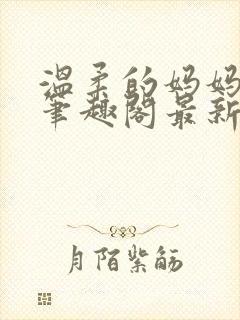 温柔的妈妈
笔趣阁最新
月陌紫觞